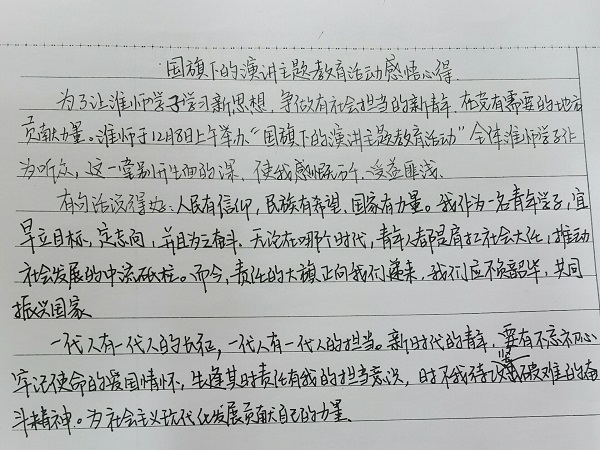 国旗下的演讲主题教育活动感悟心得
为了让淮师学子学习新思想，争做有社会担当的新青年，在党有需要的地方
贡献力量。淮师于12月8日上午举办“国旗下的演讲主题教育活动”全体淮师学子作
为听众，这一堂别开生面的课，使我感悟万千、受益匪浅。
有句话说得好：人民有信仰，民族有希望，国家有力量。我作为一名青年学子，宜
早立目标，定志向，并且为之奋斗。无论在哪个时代，青年人都是肩扛社会大任，推动
社会发展的中流砥柱。而今，责任的大旗正向我们递来，我们应不负韶华，共同
振兴国家。
一代人有一代人的长征，一代人有一代人的担当。新时代的青年，要有不忘初心
牢记使命的爱国情怀，生逢其时责任有我的担当意识，时不我待攻坚破难的奋
斗精神。为社会主义现代化发展贡献自己的力量。